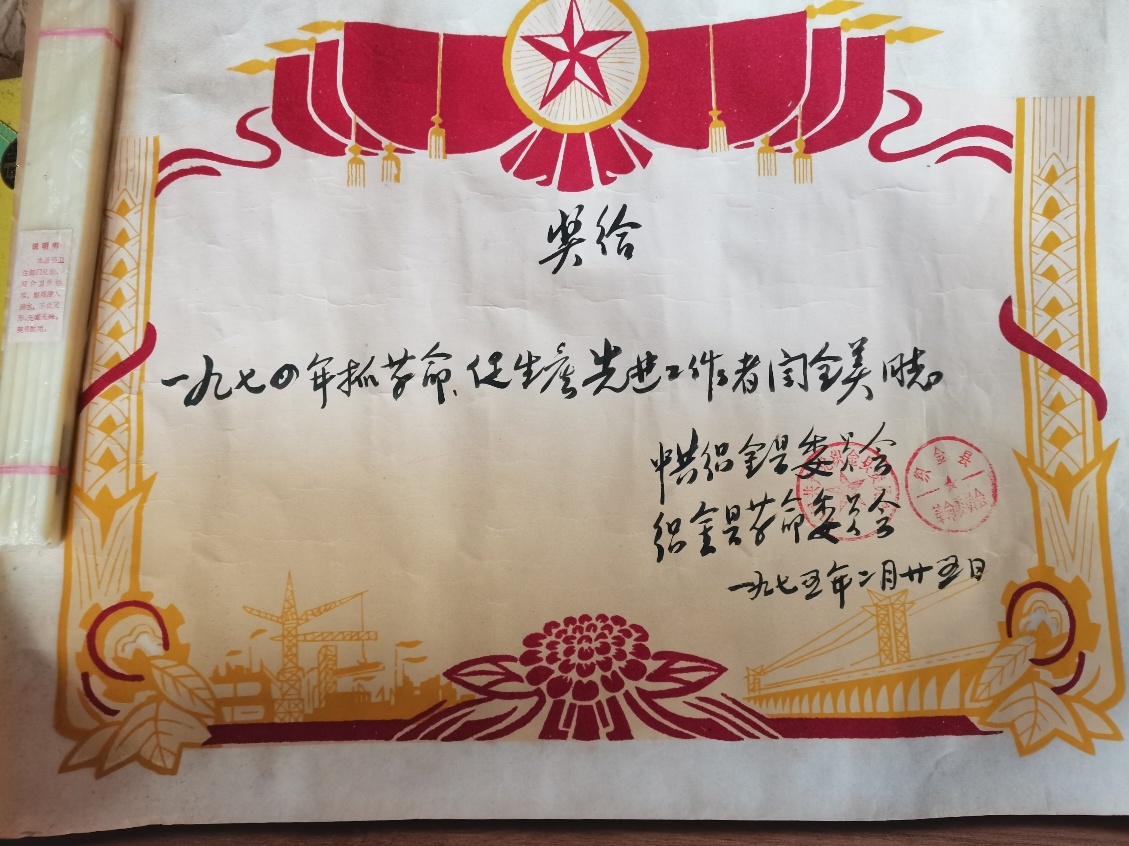 奖给
一九七四年抓革命、促生产先进工作者闫全美同志
中共织金县委员会
织金县革命委员会
一九七五年二月廿五日
织金县
革命委员会
说明书